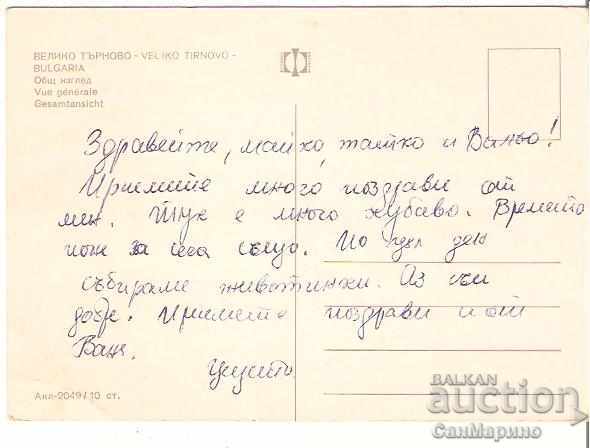 ВЕЛИКО ТЪРНОВО - VELIKO TIRNOVO -
BULGARIA
Общ изглед
Vue générale
Gesamtansicht
Здравейте, майко, татко и Ваньо!
Приемете много поздрави от
мен. Тук е много хубаво. Времето
за сега също. По цял ден
събираме животинки. Аз съм
добре. Приемете поздрави и от
Ваня.
Акл-2049 / 10 ст.
BALKAN
auction
СанМарино